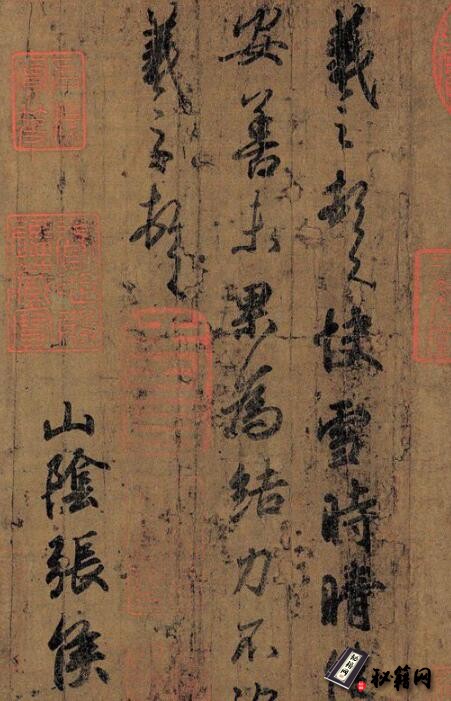 羲之頓首快雪時晴
安善未果為結力不
羲之頓首
山陰張侯
秘籍网